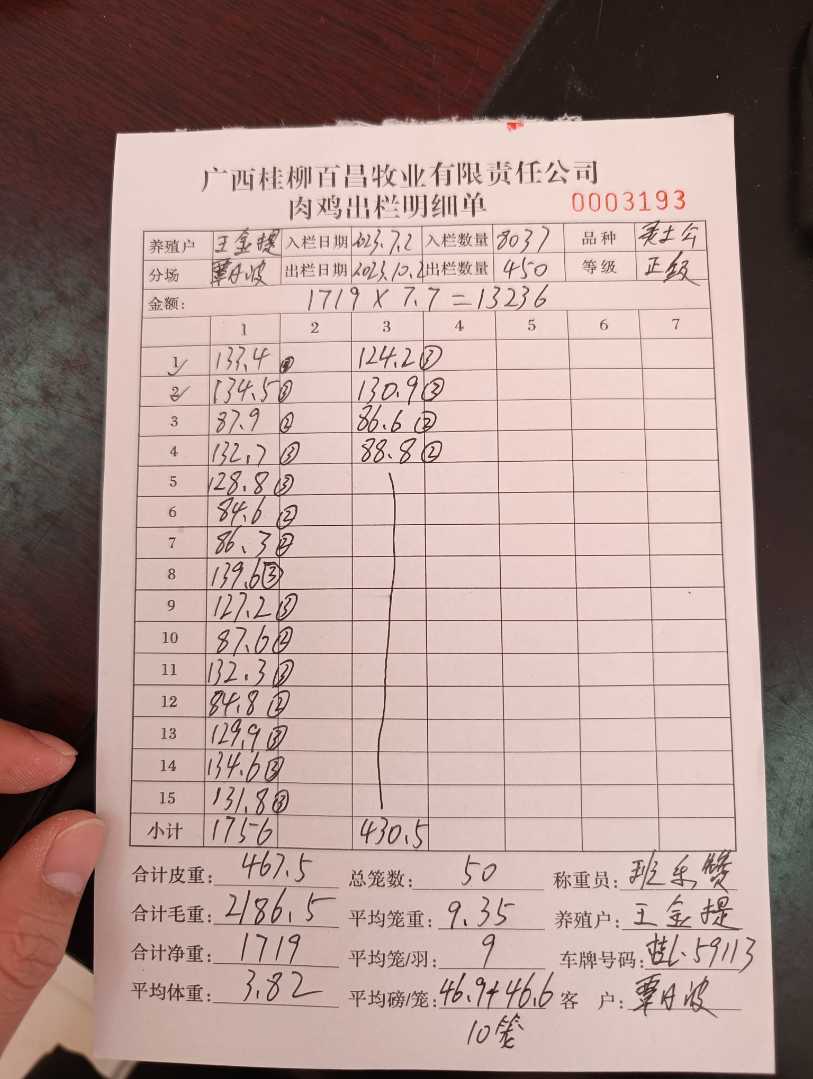 广西桂柳百昌牧业有限责任公司
肉鸡出栏明细单 0003193
养殖户 王金提 入栏日期 2023.7.2 入栏数量 8037 品种 黄土公
分场 覃丹波 出栏日期 2023.10.2 出栏数量 450 等级 正级
金额: 1719 × 7.7 = 13236
1 2 3 4 5 6 7
1 133.4 124.2 ③
2 134.5 ③ 130.9 ③
3 87.9 ② 86.6 ②
4 132.7 ③ 88.8 ②
5 128.8 ③
6 84.6 ②
7 86.3 ②
8 139.6 ③
9 127.2 ③
10 87.6 ②
11 132.3 ③
12 84.8 ②
13 129.9 ③
14 134.6 ③
15 131.8 ③
小计 1756 430.5
合计皮重: 467.5 总笼数: 50 称重员: 班
合计毛重: 2186.5 平均笼重: 9.35 养殖户: 王金提
合计净重: 1719 平均笼/羽: 9 车牌号码: 桂L·59113
平均体重: 3.82 平均磅/笼: 46.9+46.6 客 户: 覃丹波
10笼